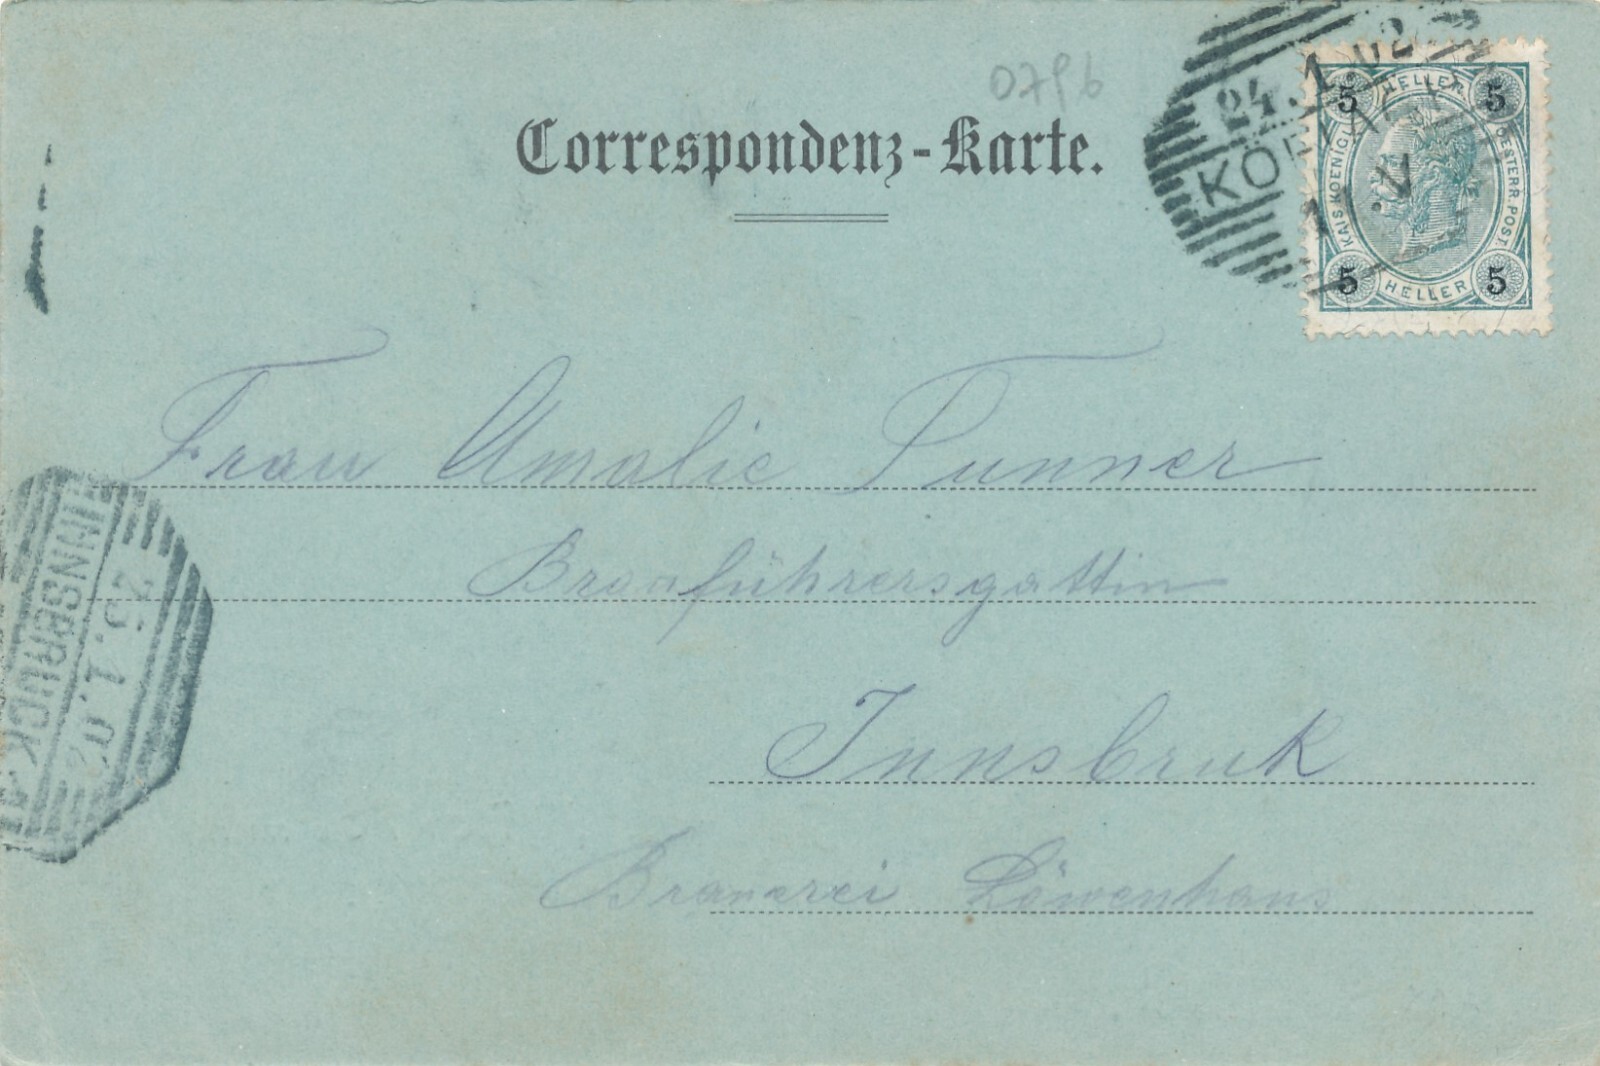 0796
Correspondenz-Karte.
24.1.02
KÖF
5 HELLER 5
KAIS. KOENIGL. OESTERR. POST.
5 HELLER 5
Frau Amalie Tunner
Brauführersgattin
Innsbruk
Brauerei Löwenhaus
INNSBRUCK
25.1.02